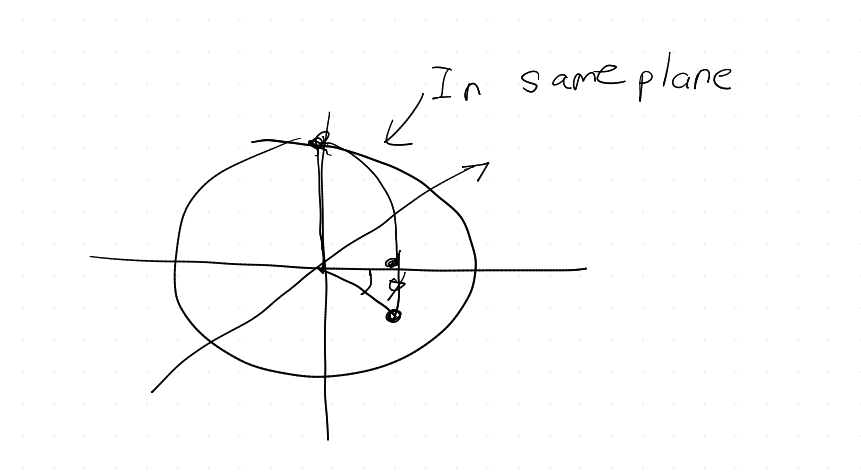 In same plane